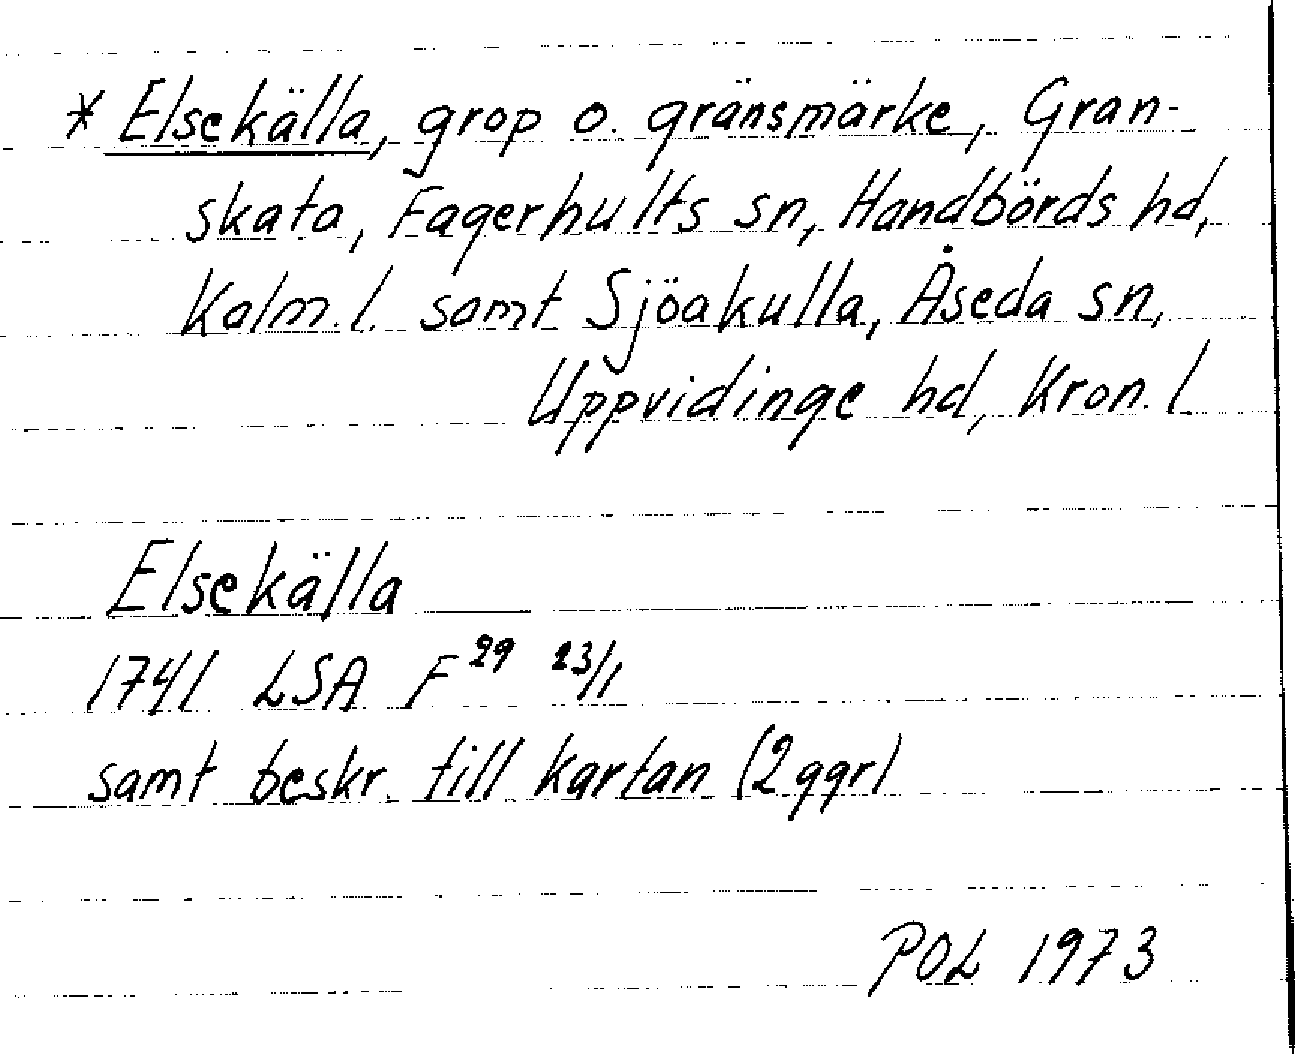 * Elsekälla, grop o. gränsmärke, Gran-
skata, Fagerhults sn, Handbörds hd,
Kalm. l. samt Sjöakulla, Åseda sn,
Uppvidinge hd, Kron. l
Elsekälla
1741 LSA F 29 23/1
samt beskr. till kartan (2 ggr)
POL 1973